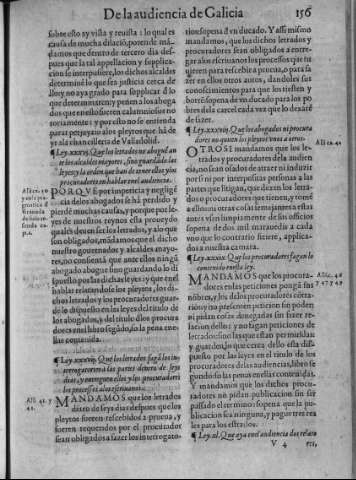 De la audiencia de Galicia
156
sobre esto ay vista y reuista: lo qual es
causa de mucha dilaciō, porende mā-
damos que dentro de tercero dia des-
pues que la tal appellacion y supplica-
cion se interpusiere, los dichos alcaldes
determinē lo que sea justicia cerca de
llo: y no aya grado para supplicar d lo
que determinarē, y penen a los aboga
dos que en esto fueren calumniosos no
toriamente: y por esto no se entienda
para
yr ala chancilleria de Valladolid.
¶ Ley.xxxvj. Que los letrados no aboguē an
te los alcaldes mayores, sino guardādo las
leyes: y la orden que han de tener ellos y los
procuradores en hablar en el audiencia.
PORQVE por impericia y neglige
cia de los abogados se hā perdido y
pierde muchas causas, y porque por le-
yes de nuestros reynos esta proueydo
quales deuen ser los letrados, y a lo que
son obligados, mādamos que el dicho
nuestro gouernador y alcaldes mayo-
res, no consientā que ante ellos ningū
abogado abogue sino guardando lo di
spuesto por las dichas leyes: y que en el
hablar y relatando los pleytos, los di-
chos letrados y los procuradores guar-
de lo dispuesto en las leyes del titulo de
los abogados, y del titulo dlos procura
dores en el libro segūdo, so la pena en e-
llas contenida.
¶ Ley.xxxvij. Que los letrados hagā los in-
terrogatorios a las partes dentro de seys
dias, y no tenga
los processos
MANDAMOS que los letrados
dētro de seys dias despues que los
pleytos fueren rescebidos a prueua, y
fueren requeridos por el procurador
sean obligados a hazer los interrogato-
tion so pena d vn ducado. Y assi mismo
mandamos, que los dichos letrados y
procuradores sean obligados a entre-
gar a los escriuanos los processos que to
maren para rescebir a prueua, o para ha
zer en ellos otros autos, dandoles sus
conoscimientos para que los tiesten y
borrē so pena de vn ducado para los po
bres dela carcel cada vez que lo dexarē
de fazer.
¶ Ley.xxxviij. Que los abogados ni procura
dores no quiten los pleytos vnos a otros.
OTROSI mandamos que los le-
trados y procuradores dela audien
cia, no sean osados de atraer ni induzir
por si ni por interpositas personas a las
partes que litigan, que dexen los letra-
dos o procuradores que tienen, y tomē
a ellos:
autes vsen limpiamente de sus officios
so pena de dos mil marauedis a cada
vno que lo contrario fiziere, applica-
dos a nuestra camara.
¶ Ley.xxxix. Que los procuradores fagan lo
contenido enesta ley.
MANDAMOS que los procura-
dores en las peticiones pongā sus
nōbres, y los
rio: y no presenten peticion sin poder,
ni pidan cosas denegadas sin fazer re-
lacion dello: y no hagan peticiones de
letrados: sino las que estan permitidas
y guarden, lo que cerca dello esta dis-
puesto por las leyes en el titulo de los
procuradores de las audiencias, libro se
gundo so las penas en ellas contenidas.
Y mandamos que los dichos procura-
dores no pidan publicacion sin ser
passado el termino: so pena que la pu-
blicacion sea ninguna, y pague tres rea
les para los estrados.
¶ Ley.xl. Que aya en el audiencia
V 4